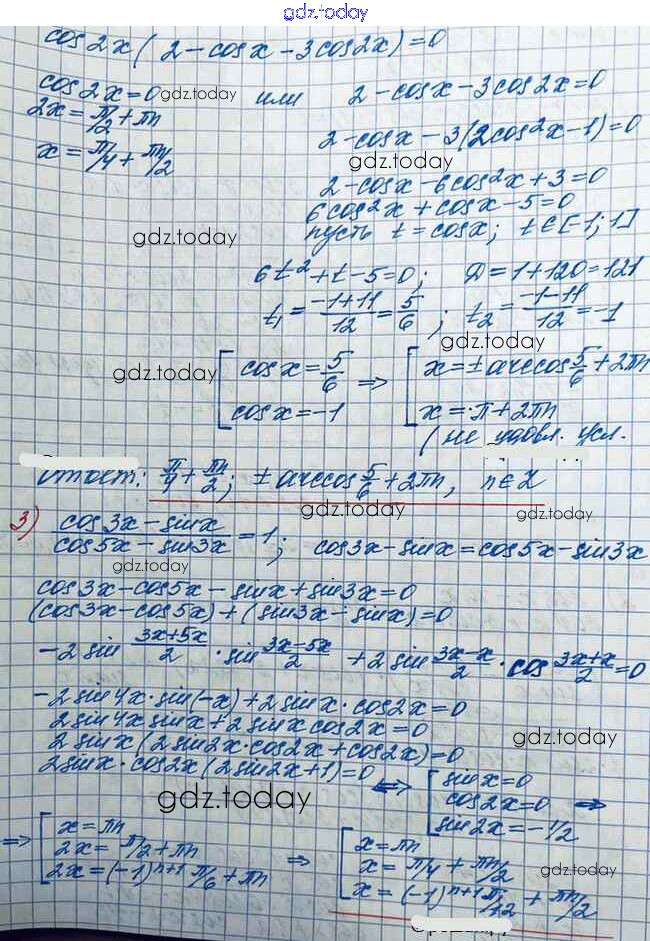 gdz.today
cos2x(2-cosx-3cos2x)=0
cos2x=0 gdz.today или 2-cosx-3cos2x=0
2x=π/2+πn
2-cosx-3(2cos²x-1)=0
x=π/4+πn/2 gdz.today
2-cosx-6cos²x+3=0
6cos²x+cosx-5=0
gdz.today пусть t=cosx; t∈[-1;1]
6t²+t-5=0; D=1+120=121
t₁=(-1+11)/12=5/6; t₂=(-1-11)/12=-1
gdz.today
gdz.today [cosx=5/6 ⇒ [x=±arccos5/6+2πn
cosx=-1 x=π+2πn
(не удовл. усл.
Ответ: π/4+πn/2; ±arccos5/6+2πn, n∈Z
gdz.today gdz.today
3) (cos3x-sinx)/(cos5x-sin3x)=1; cos3x-sinx=cos5x-sin3x
gdz.today
cos3x-cos5x-sinx+sin3x=0
(cos3x-cos5x)+(sin3x-sinx)=0
-2sin (3x+5x)/2 · sin (3x-5x)/2 + 2sin (3x-x)/2 · cos (3x+x)/2=0
-2sin4x·sin(-x)+2sinx·cos2x=0
2sin4xsinx+2sinxcos2x=0
gdz.today
2sinx(2sin2x·cos2x+cos2x)=0
2sinx·cos2x(2sin2x+1)=0 ⇔ [sinx=0
gdz.today cos2x=0 ⇒
sin2x=-1/2
⇒ [x=πn ⇒ [x=πn
2x=π/2+πn x=π/4+πn/2
gdz.today
2x=(-1)ⁿ⁺¹π/6+πn x=(-1)ⁿ⁺¹π/12+πn/2